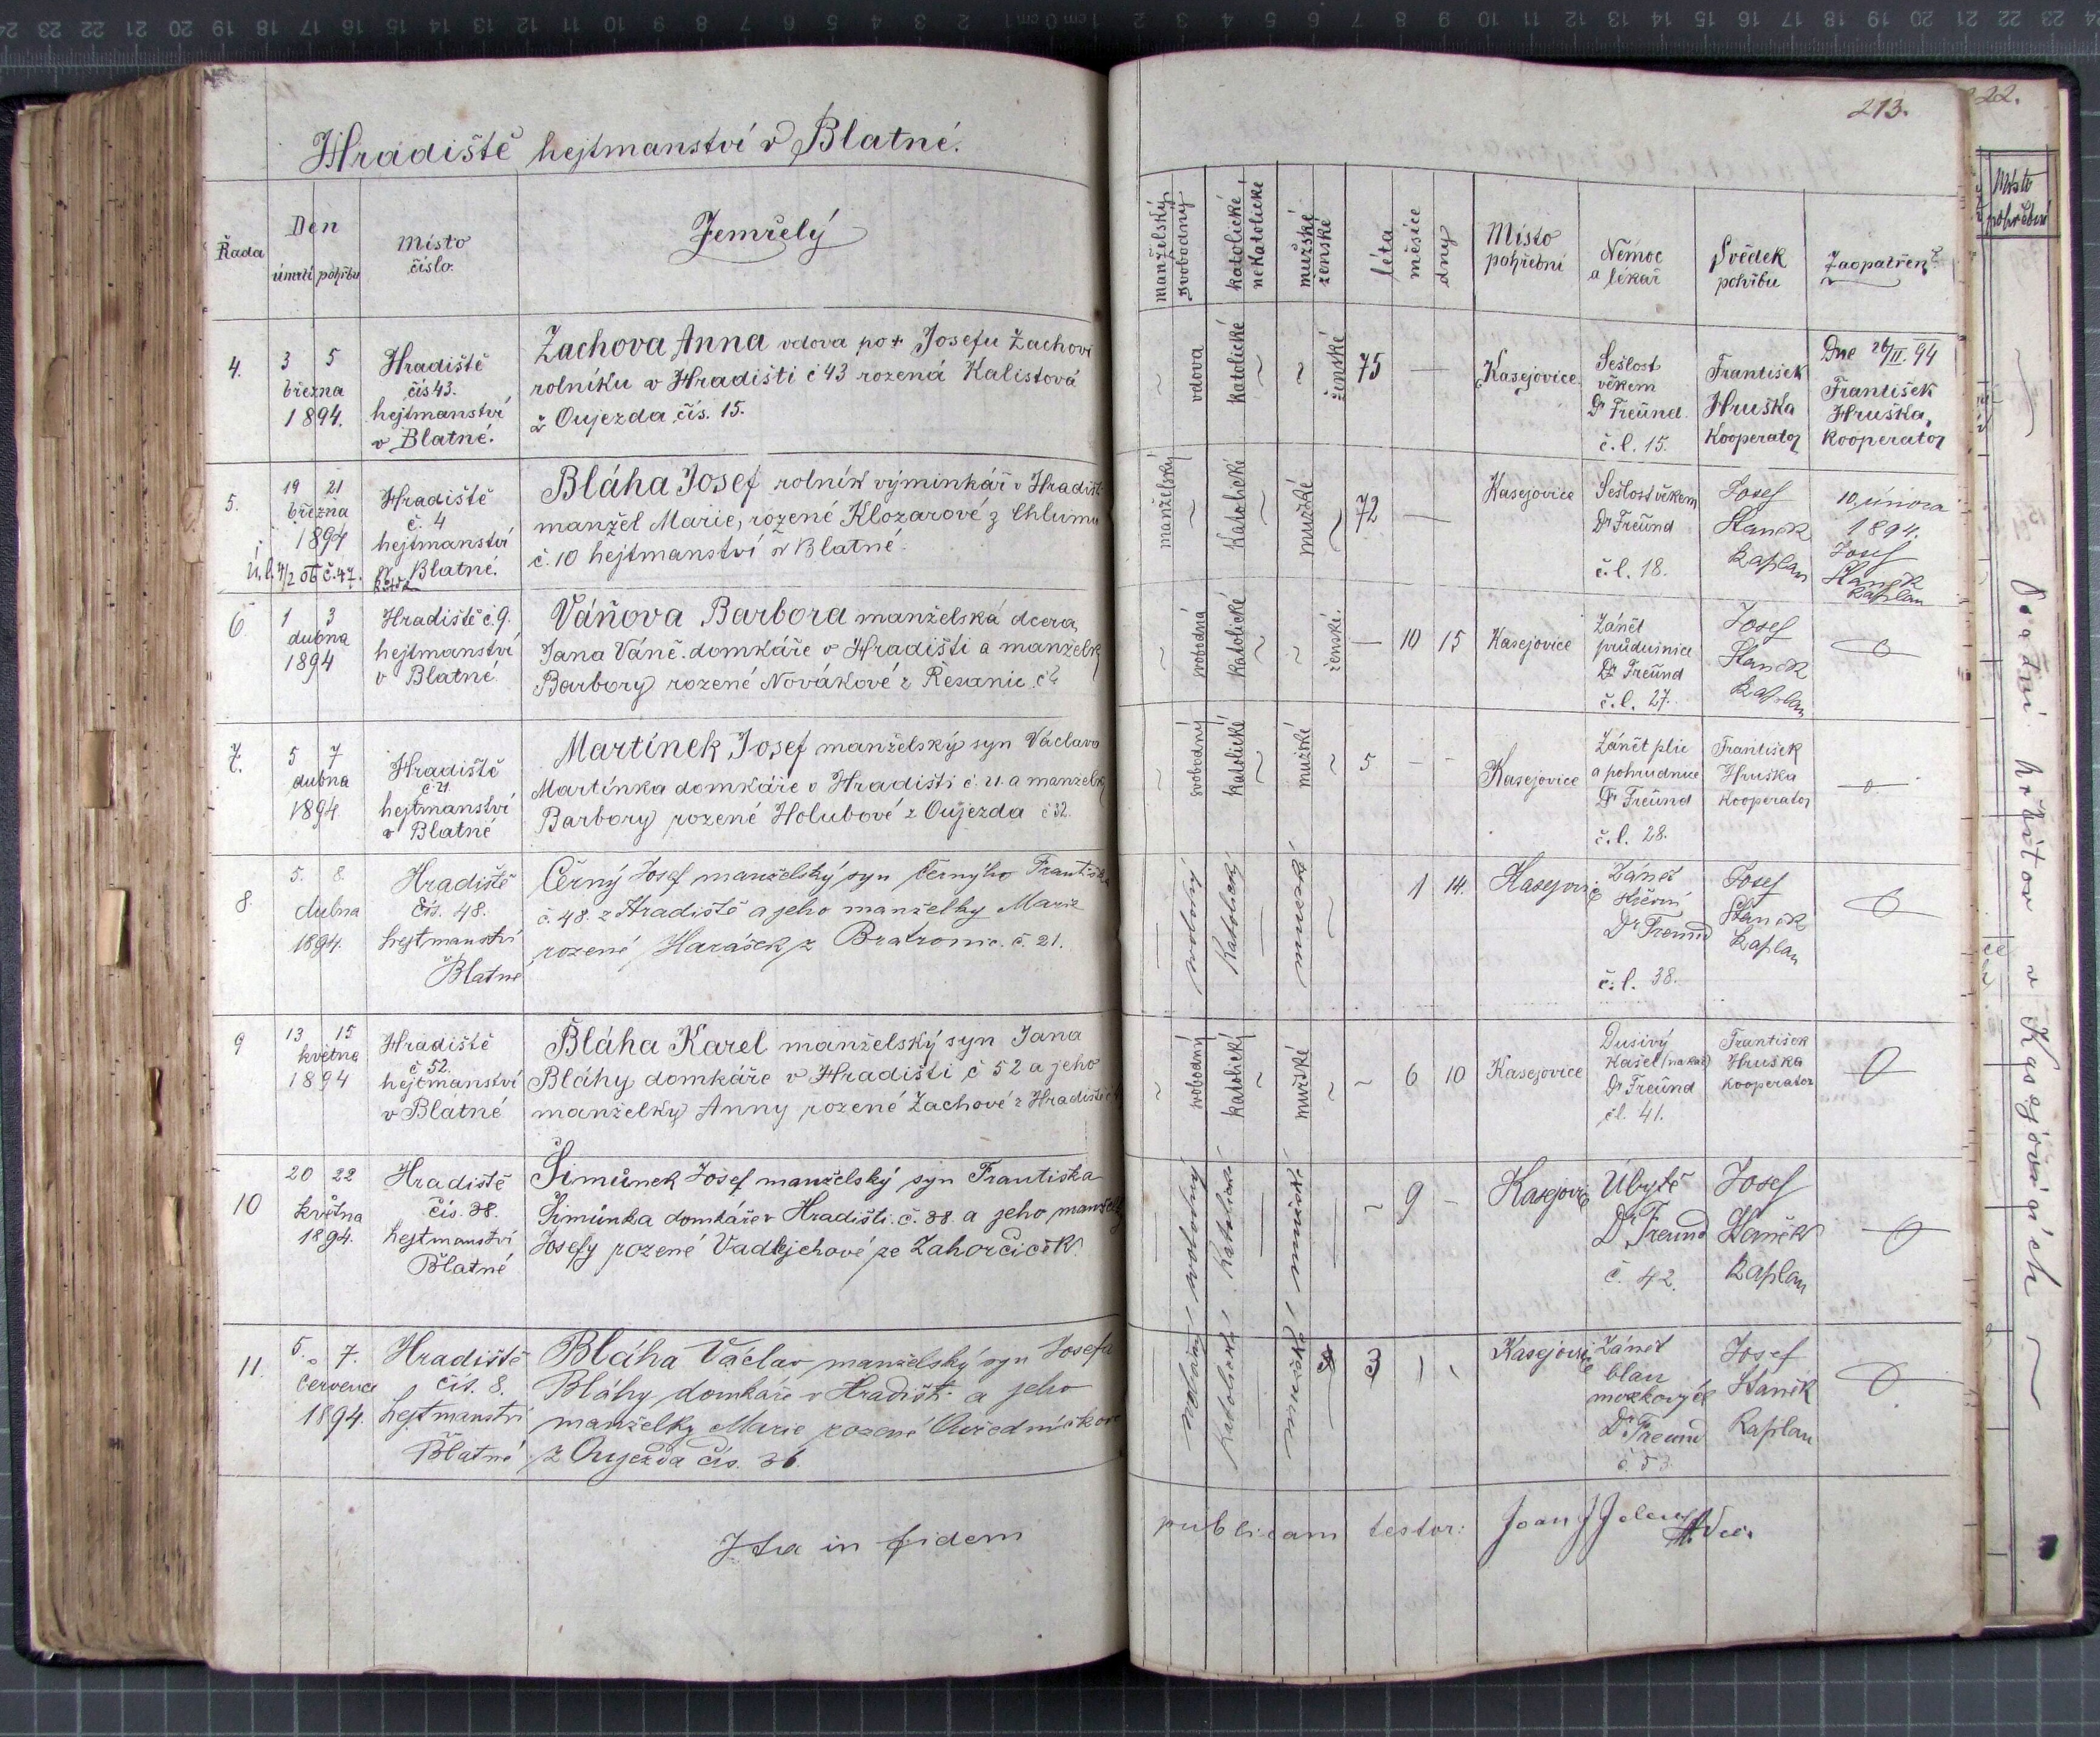 Hradiště hejtmanství v Blatné.
213.
22.
Řada
Den
úmrtí pohřbu
Místo
číslo.
Zemřelý
manželský
svobodný
katolické
nekatolické
mužské
ženské
léta
měsíce
dny
Místo
pohřební
Nemoc
a lékař
Svědek
pohřbu
Zaopatřen
Místo
pohřební
4.
3 5
března
1894.
Hradiště
čís 43.
hejtmanství
v Blatné.
Zachova Anna vdova po + Josefu Zachovi
rolníku v Hradišti č 43 rozená Kalistová
z Oujezda čís. 15.
vdova
katolické
ženské
75 —
Kasejovice
Sešlost
věkem
Dr Freund.
č.l. 15.
František
Hruška
Kooperator
Dne 26/II. 94
František
Hruška,
kooperator
5.
19 21
března
1894
Hradiště
č. 4
hejtmanství
v Blatné.
Bláha Josef rolník výminkář v Hradišt
manžel Marie, rozené Klozarové z Chlumu
č. 10 hejtmanství v Blatné.
manželský
katolické
mužské
72 —
Kasejovice
Sešlost věkem
Dr Freund
č.l. 18.
Josef
Staněk
kaplan
10. února
1894.
Josef
Staněk
kaplan
6
1 3
dubna
1894
Hradiště č.9.
hejtmanství
v Blatné.
Váňova Barbora manželská dcera,
Jana Váně. domkáře v Hradišti a manželk
Barbory rozené Novákové z Řesanic.
svobodná
katolické
ženské.
— 10 15
Kasejovice
Zánět
průdušnice
Dr Freund
č.l. 27.
Josef
Staněk
kaplan
7.
5 7
dubna
1894
Hradiště
č 21
hejtmanství
v Blatné
Martínek Josef manželský syn Václava
Martínka domkáře v Hradišti č. 21. a manželk
Barbory rozené Holubové z Oujezda č 32.
svobodný
katolické
mužské
5 - -
Kasejovice
Zánět plic
a pohrudnice
Dr Freund
č.l. 28.
František
Hruška
Kooperator
8.
5. 8.
dubna
1894.
Hradiště
čís. 48.
hejtmanství
Blatné
Černý Josef manželský syn Černýho Františka
č. 48. z Hradiště a jeho manželky Marie
rozené Harášek z Bratronic. č. 21.
svobodný
katolický
mužské
1 14.
Kasejovice
Zánět
Dr Freund
č.l. 38.
Josef
Staněk
kaplan
9
13 15
května
1894
Hradiště
č 52.
hejtmanství
v Blatné
Bláha Karel manželský syn Jana
Bláhy domkáře v Hradišti č 52 a jeho
manželky Anny rozené Zachové z Hradiště
svobodný
katolický
mužské
6 10
Kasejovice
Dusivý
Kašel
Dr Freund
čl. 41.
František
Hruška
kooperator
10
20 22
května
1894.
Hradiště
čís. 38.
hejtmanství
Blatné
Šimůnek Josef manželský syn Františka
Šimůnka domkáře v Hradišti. č. 38 a jeho manželk
Josefy rozené Vadlejchové ze Zahorčiček.
svobodný
katolické
mužské
9 -
Kasejovice
Úbytě
Dr Freund
č. 42.
Josef
Staněk
kaplan
11.
5. 7.
července
1894.
Hradiště
čís. 8.
hejtmanství
Blatné
Bláha Václav manželský syn Josefa
Bláhy domkáře v Hradišt. a jeho
manželky Marie rozené Ouředníčkove
z Oujezda čís. 36.
svobodný
katolické
mužské
3
Kasejovice
Zánět
blan
mozkových
Dr Freund
č. 53.
Josef
Staněk
Kaplan
Ita in fidem publicam testor:
Poslední hřbitov v Kasejovicích